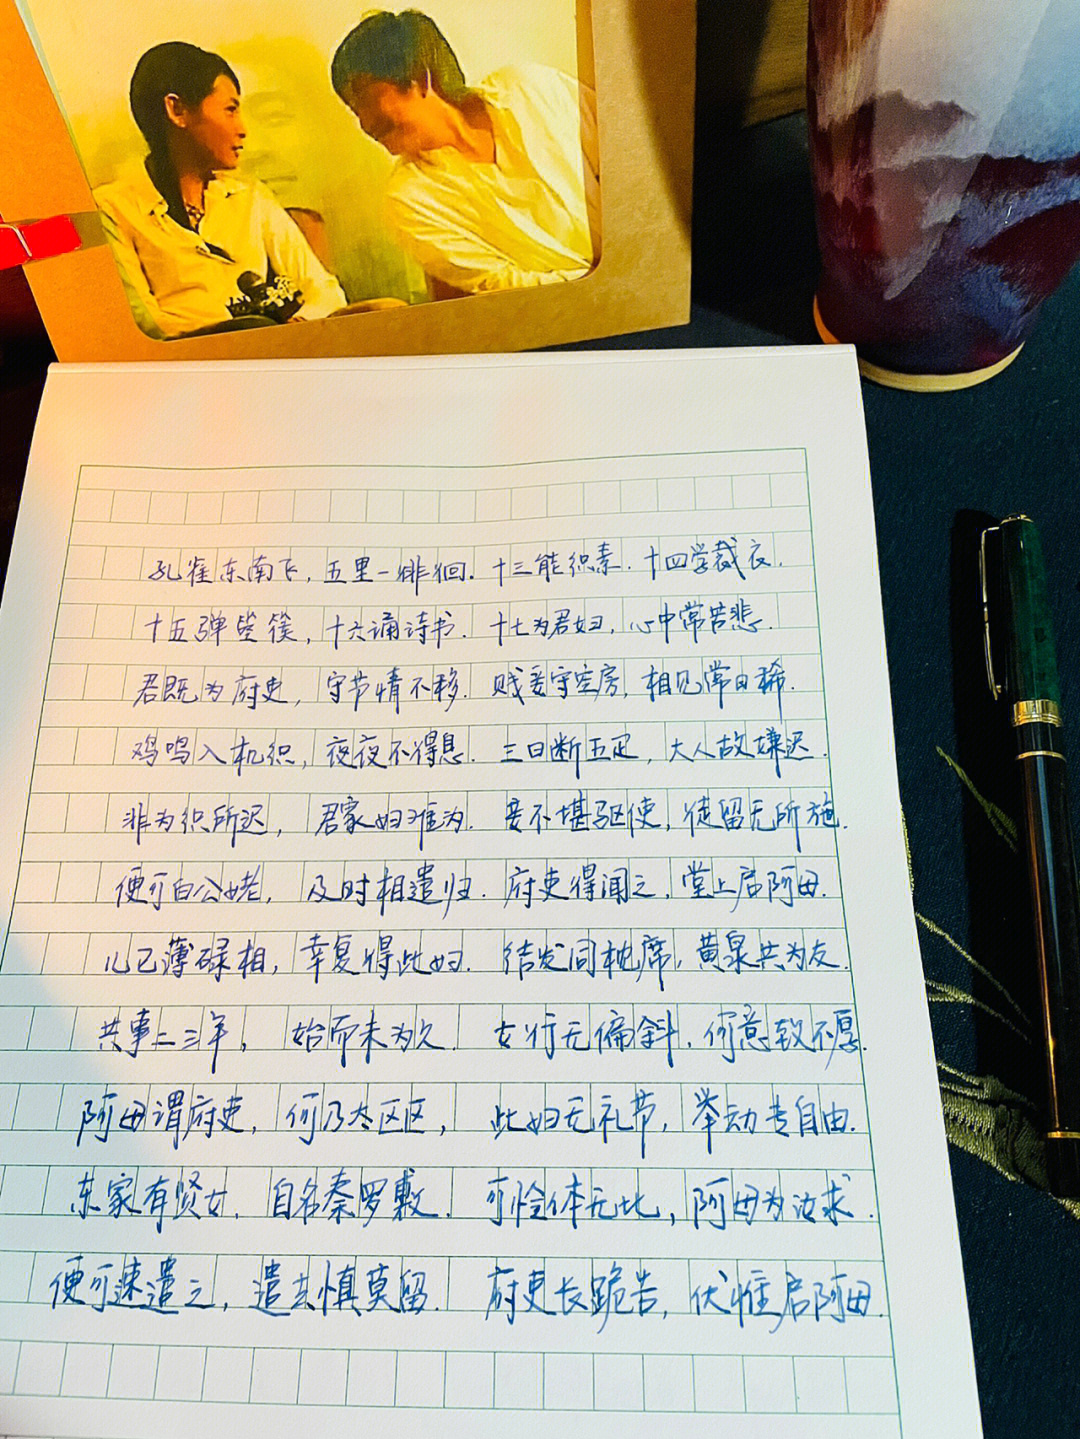 孔雀东南飞，五里一徘徊．十三能织素．十四学裁衣．
十五弹箜篌，十六诵诗书．十七为君妇，心中常苦悲．
君既为府吏，守节情不移．贱妾守空房，相见常日稀．
鸡鸣入机织，夜夜不得息．三日断五疋，大人故嫌迟．
非为织所迟，君家妇难为．妾不堪驱使，徒留无所施．
便可白公姥，及时相遣归．府吏得闻之，堂上启阿母．
儿已薄碌相，幸复得此妇．结发同枕席，黄泉共为友．
共事二三年，始而未为久．女行无偏斜，何意致不厚．
阿母谓府吏，何乃太区区，此妇无礼节，举动专自由．
东家有贤女．自名秦罗敷．可怜体无比，阿母为汝求．
便可速遣之，遣去慎莫留．府吏长跪告，伏惟启阿母．